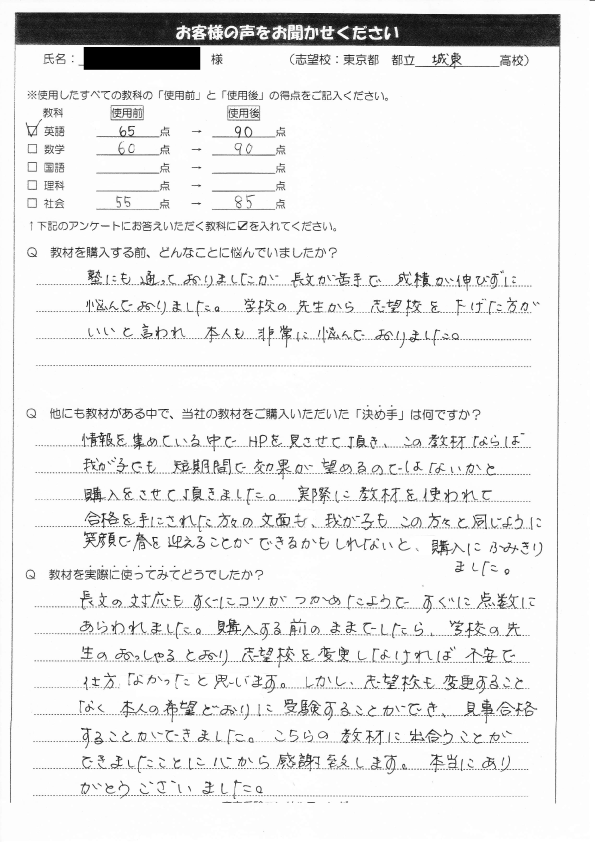 お客様の声をお聞かせください
氏名： 様 （志望校：東京都 都立 城東 高校）
※使用したすべての教科の「使用前」と「使用後」の得点をご記入ください。
教科 使用前 使用後
☑ 英語 65点 → 90点
□ 数学 60点 → 90点
□ 国語 点 → 点
□ 理科 点 → 点
□ 社会 55点 → 85点
↑下記のアンケートにお答えいただく教科に☑を入れてください。
Q 教材を購入する前、どんなことに悩んでいましたか？
塾にも通っておりましたが長文が苦手で成績が伸びずに
悩んでおりました。学校の先生から志望校を下げた方が
いいと言われ本人も非常に悩んでおりました。
Q 他にも教材がある中で、当社の教材をご購入いただいた「決め手」は何ですか？
情報を集めている中でHPを見させて頂き、この教材ならば
我が子でも短期間で効果が望めるのではないかと
購入をさせて頂きました。実際に教材を使われて
合格を手にされた方々の文面も、我が子もこの方々と同じように
笑顔で春を迎えることができるかもしれないと、購入にふみきり
ました。
Q 教材を実際に使ってみてどうでしたか？
長文の対応もすぐにコツがつかめたようですぐに点数に
あらわれました。購入する前のままでしたら、学校の先
生のおっしゃるとおり志望校を変更しなければ不安で
仕方なかったと思います。しかし、志望校も変更すること
なく本人の希望どおりに受験することができ、見事合格
することができました。こちらの教材に出合うことが
できましたことに心から感謝致します。本当にあり
がとうございました。